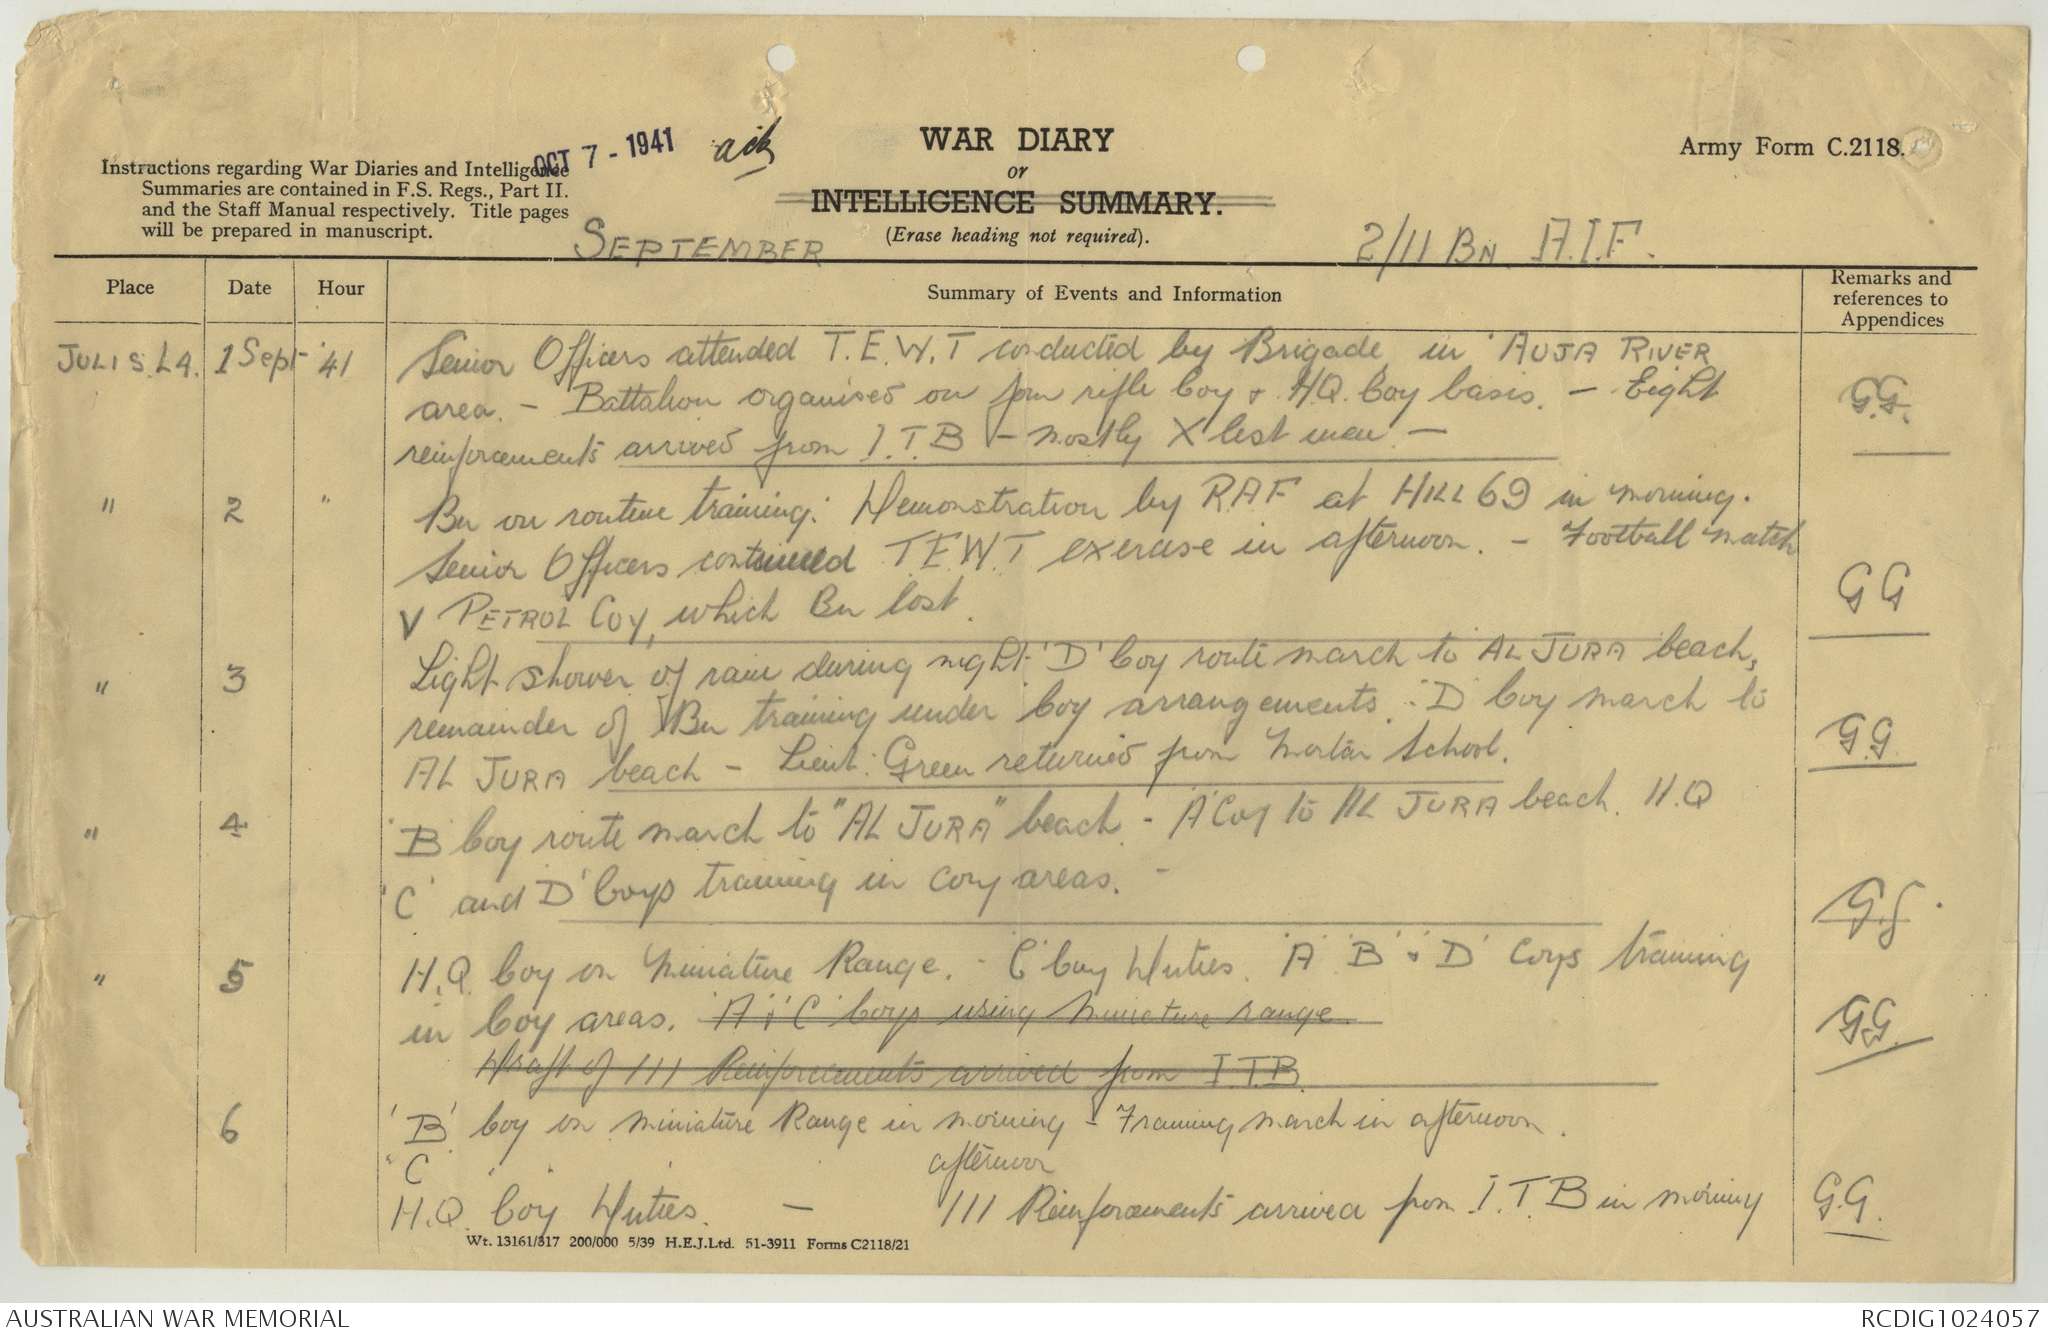 Instructions regarding War Diaries and Intelligence
Summaries are contained in F.S. Regs., Part II.
and the Staff Manual respectively. Title pages
will be prepared in manuscript.
OCT 7 - 1941
ack
WAR DIARY
or
INTELLIGENCE SUMMARY.
(Erase heading not required).
Army Form C.2118.
SEPTEMBER
2/11 BN A.I.F.
Place
Date
Hour
Summary of Events and Information
Remarks and
references to
Appendices
JULIS. L4. 1 Sept '41 Senior Officers attended T.E.W.T conducted by Brigade in 'AUJA RIVER
area. - Battalion organised on four rifle Coy + H.Q. Coy basis. - Eight
G.G.
reinforcements arrived from I.T.B - mostly X list men. -
" 2 " Bn on routine training. Demonstration by RAF at HILL 69 in morning.
Senior Officers continued T.E.W.T exercise in afternoon. - Football match
V PETROL Coy, which Bn lost.
GG
" 3 Light shower of rain during night. 'D' Coy route march to AL JURA beach,
remainder of Bn training under Coy arrangements. 'D' Coy march to
AL JURA beach - Lieut. Green returned from Mortar School.
G.G
" 4 'B' Coy route march to "AL JURA" beach - 'A' Coy to AL JURA beach. H.Q
'C' and 'D' Coys training in Coy areas. -
G.G.
" 5 H.Q. Coy on Miniature Range. - 'C' Coy Duties. 'A' 'B' + 'D' Coys training
in Coy areas. 'A' + 'C' Coys using Miniature range.
G.G.
Draft of 111 Reinforcements arrived from I.T.B.
6 'B' Coy on Miniature Range in morning - Training march in afternoon.
'C' " " afternoon
H.Q. Coy Duties. - 111 Reinforcements arrived from I.T.B in morning
G.G.
Wt. 13161/317 200/000 5/39 H.E.J.Ltd. 51-3911 Forms C2118/21
AUSTRALIAN WAR MEMORIAL
RCDIG1024057